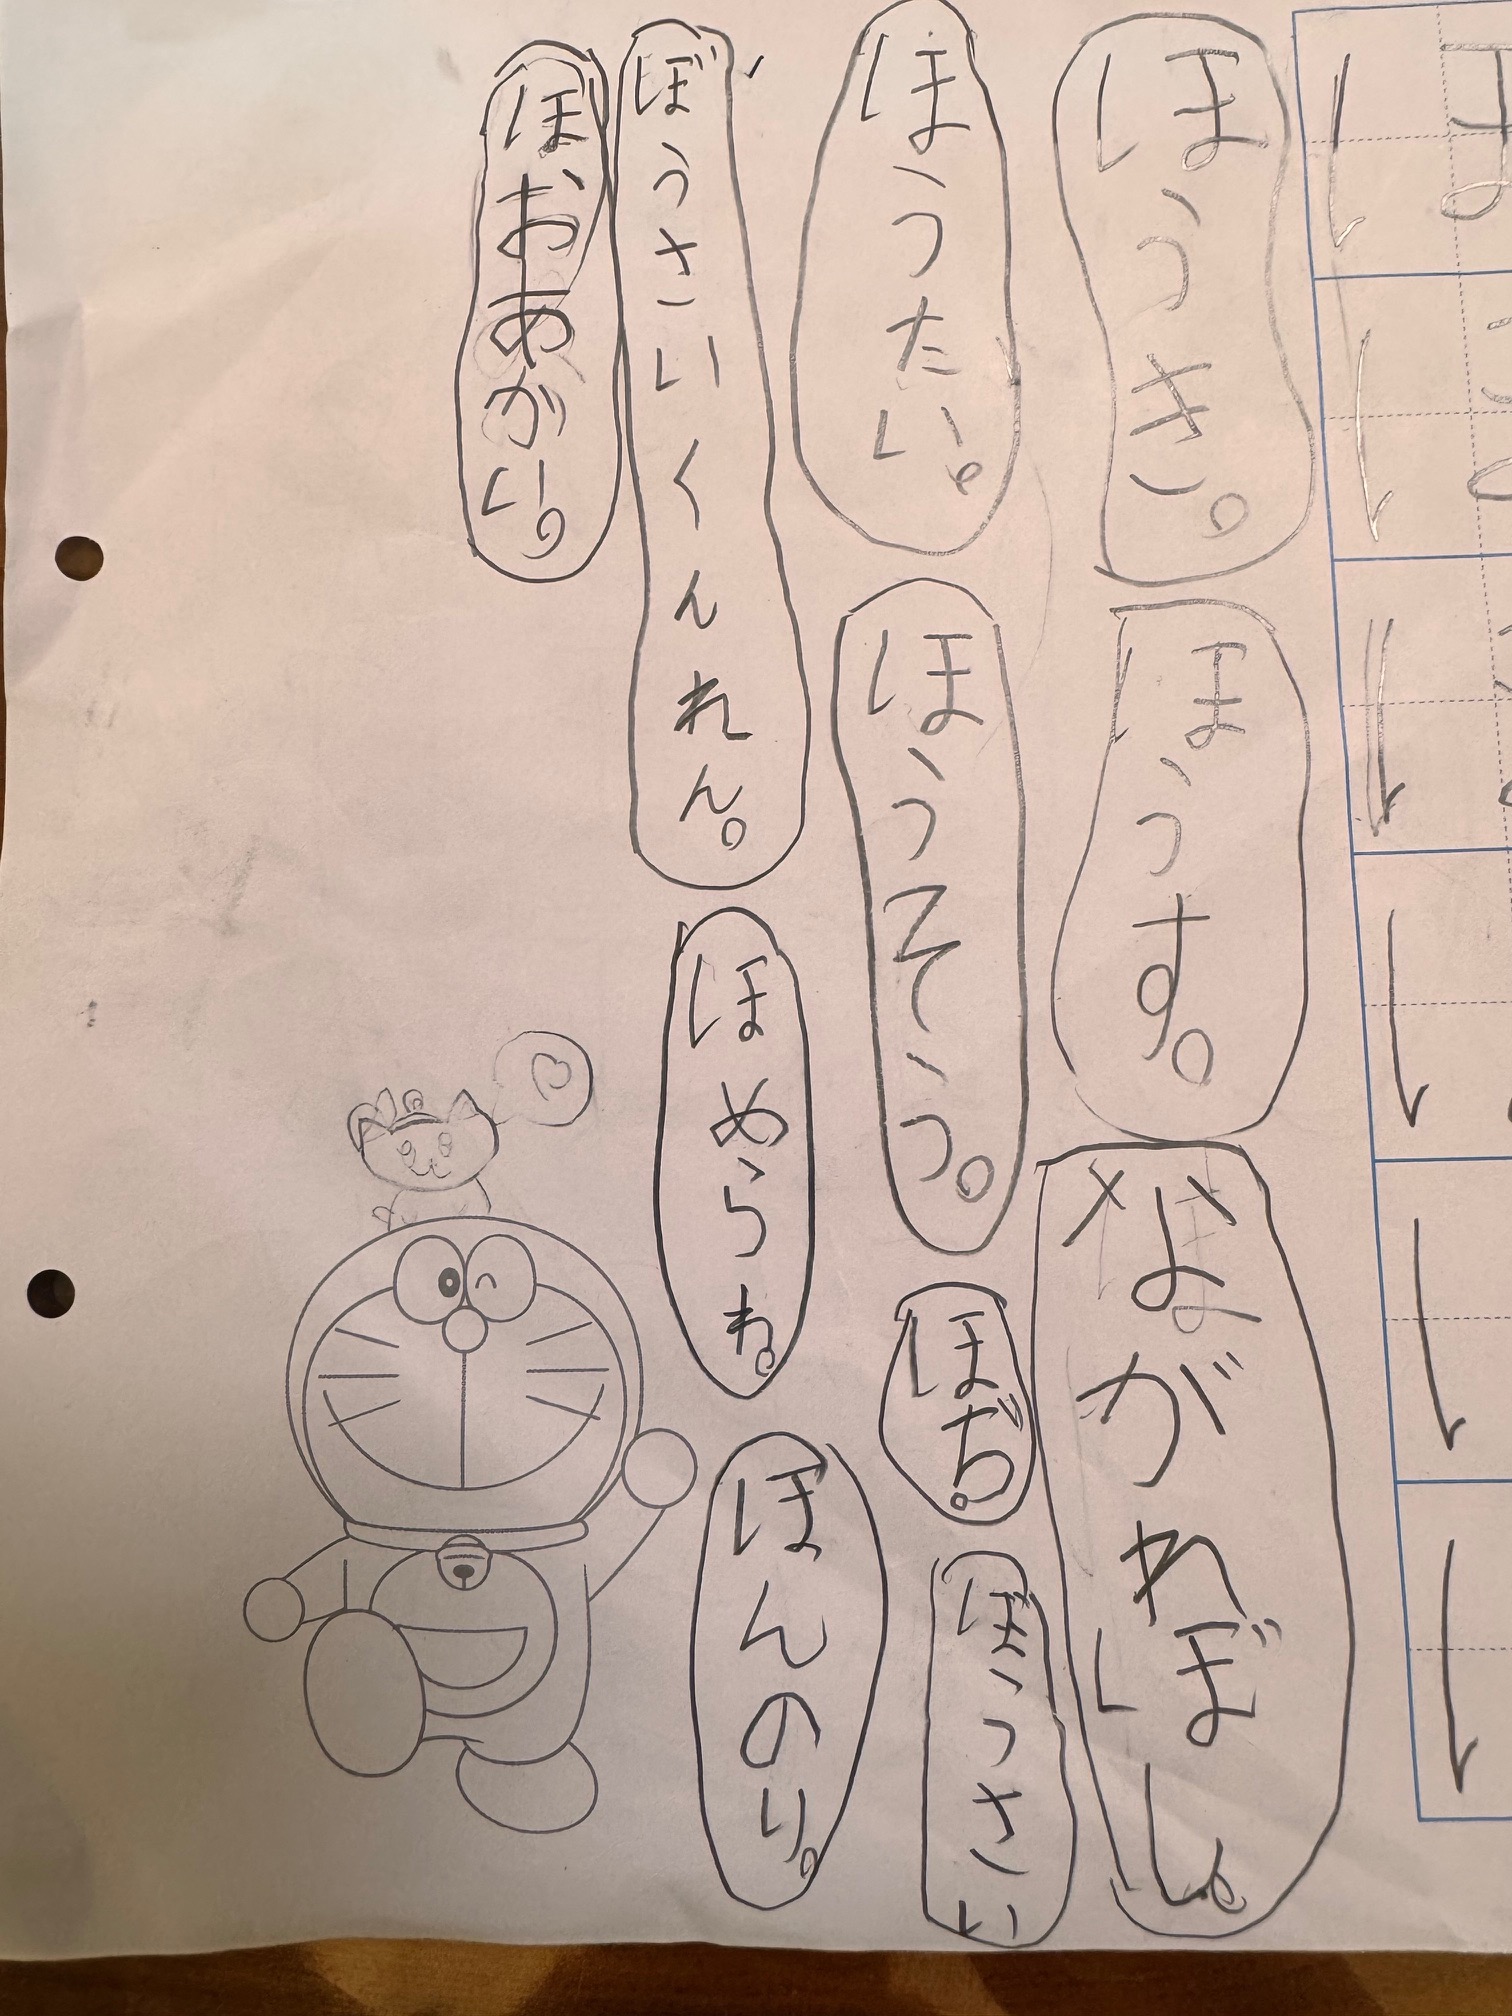 ほうき。
ほうす。
ながれぼし。
ほうたい。
ほうそう。
ほぢ。
ぼうさい
ぼうさいくんれん。
ほめらね。
ほんのり。
ほおあがい。